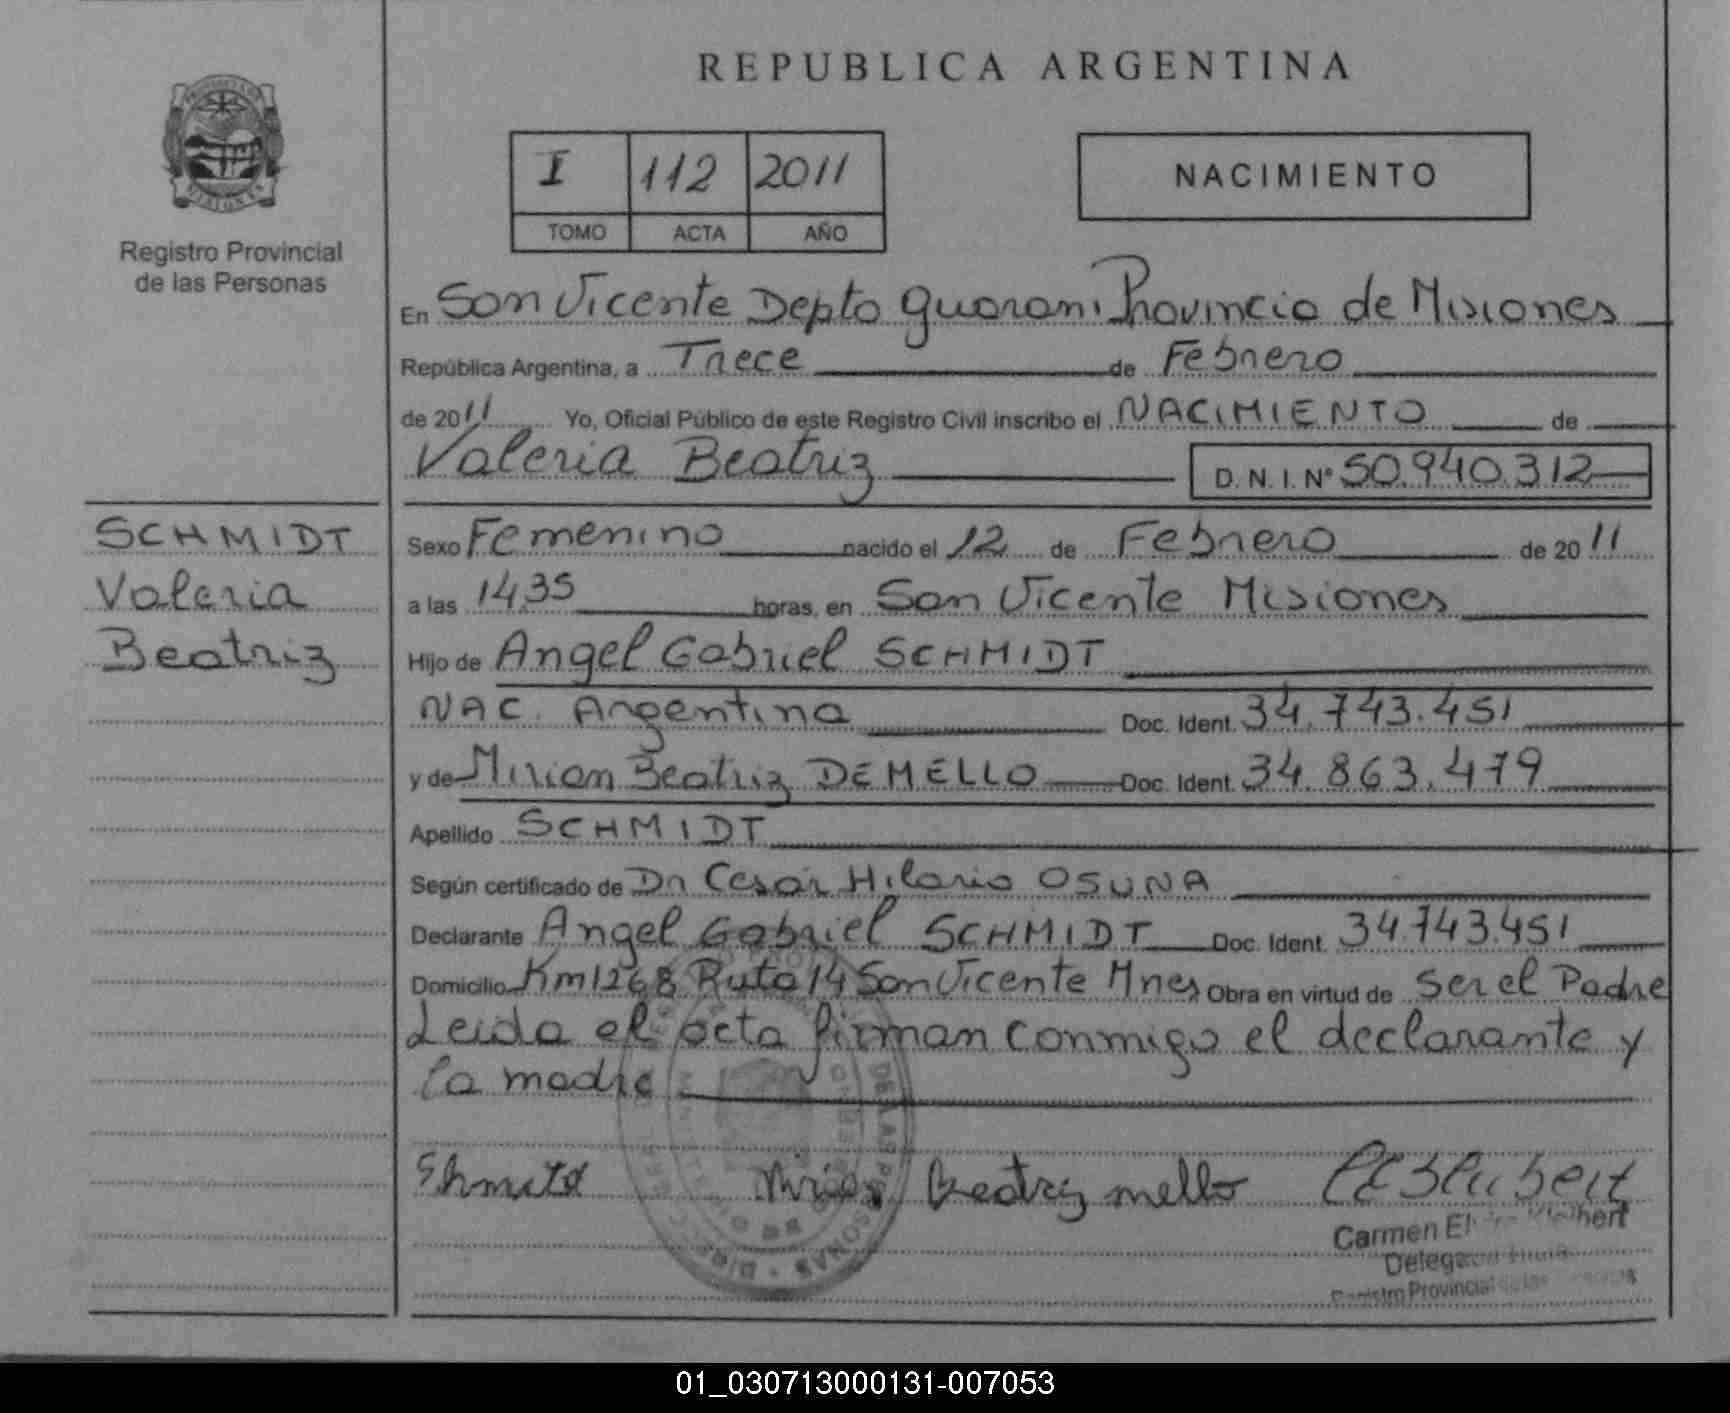 REPUBLICA ARGENTINA
I 112 2011
TOMO ACTA AÑO
NACIMIENTO
Registro Provincial
de las Personas
En San Vicente Depto Guarani Provincia de Misiones
República Argentina, a Trece de Febrero
de 2011 Yo, Oficial Público de este Registro Civil inscribo el NACIMIENTO de
Valeria Beatriz D.N.I. Nº 50.940.312
SCHMIDT
Valeria
Beatriz
Sexo Femenino nacido el 12 de Febrero de 2011
a las 14,35 horas, en San Vicente Misiones
Hijo de Angel Gabriel SCHMIDT
NAC. Argentina Doc. Ident. 34.743.451
y de Mirian Beatriz DE MELLO Doc. Ident. 34.863.479
Apellido SCHMIDT
Según certificado de Dr Cesar Hilario OSUNA
Declarante Angel Gabriel SCHMIDT Doc. Ident. 34.743.451
Domicilio Km 1268 Ruta 14 San Vicente Mnes Obra en virtud de Ser el Padre
Leida el acta firman conmigo el declarante y
la madre
Beatriz mello
Carmen
Registro Provincial
01_030713000131-007053